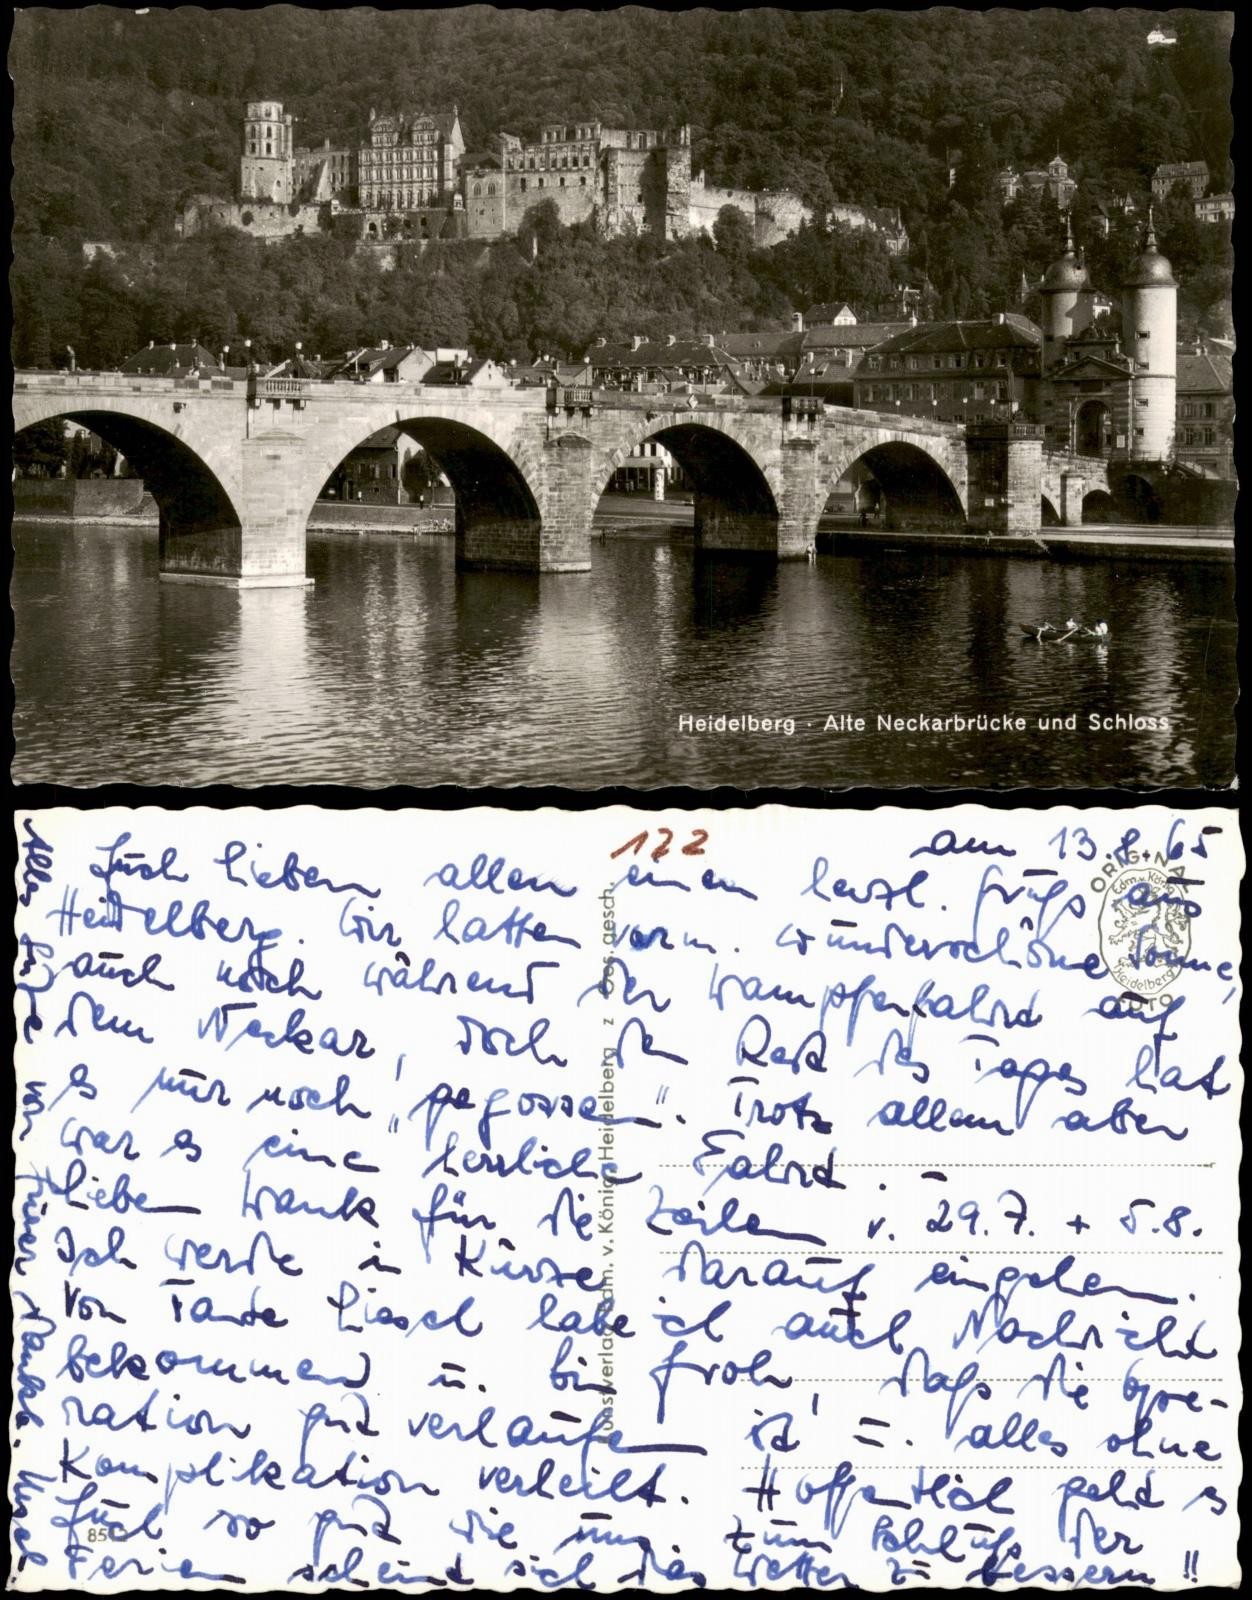 Heidelberg · Alte Neckarbrücke und Schloss
122
am 13.8.65
Euch lieben allen einen herzl. Gruß aus
Heidelberg. Wir hatten vorm. wunderschöne Sonne,
auch noch während der Dampferfahrt auf
dem Neckar, doch den Rest des Tages hat
es nur noch „gegossen". Trotz allem aber
war es eine herrliche Fahrt. –
Lieben Dank für die Zeilen v. 29.7. + 5.8.
Ich werde in Kürze darauf eingehen.
Von Tante Liesel habe ich auch Nachricht
bekommen u. bin froh, daß die Ope-
ration gut verlaufen ist u. alles ohne
Komplikation verheilt. Hoffentlich geht es
Euch so gut wie uns. Zum Schluß der
Ferien scheint sich das Wetter zu bessern!!
Alles Gute von
ORIGINAL
Edm. v. König
Heidelberg
FOTO
Kunstverlag Edm. v. König, Heidelberg z Ges. gesch.
85